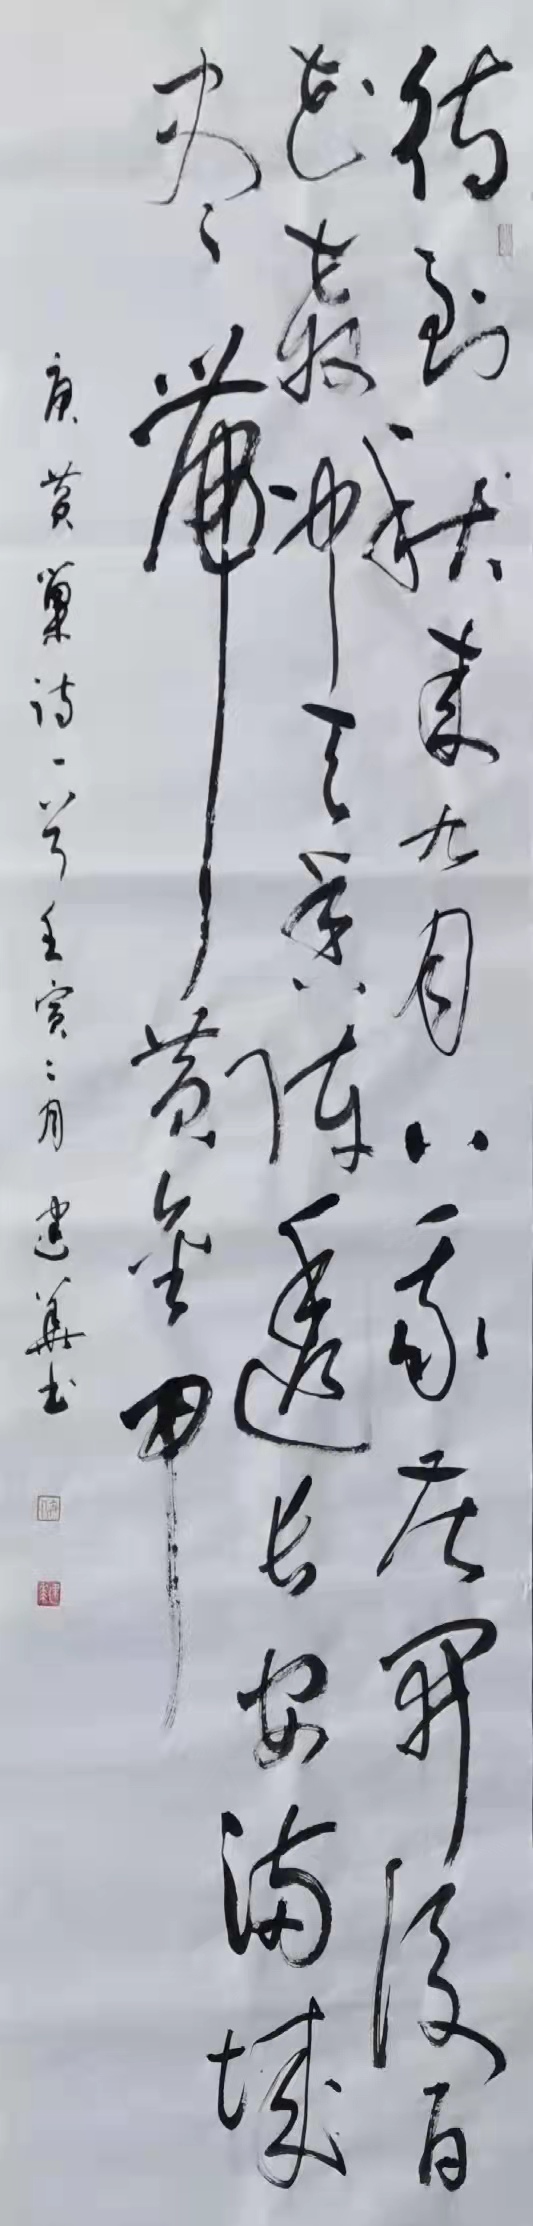 待到秋来九月八我花開後百
花殺冲天香阵透长安满城
尽帶黄金甲
唐黄巢诗一首壬寅二月建華书